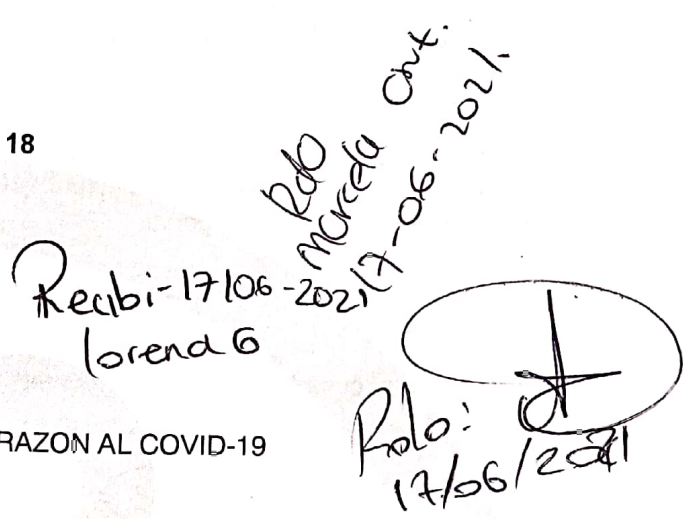 18
Rdo
Marcela Ort.
17-06-2021.
Recibi-17/06-2021
lorena G
RAZON AL COVID-19
Rdo:
17/06/2021